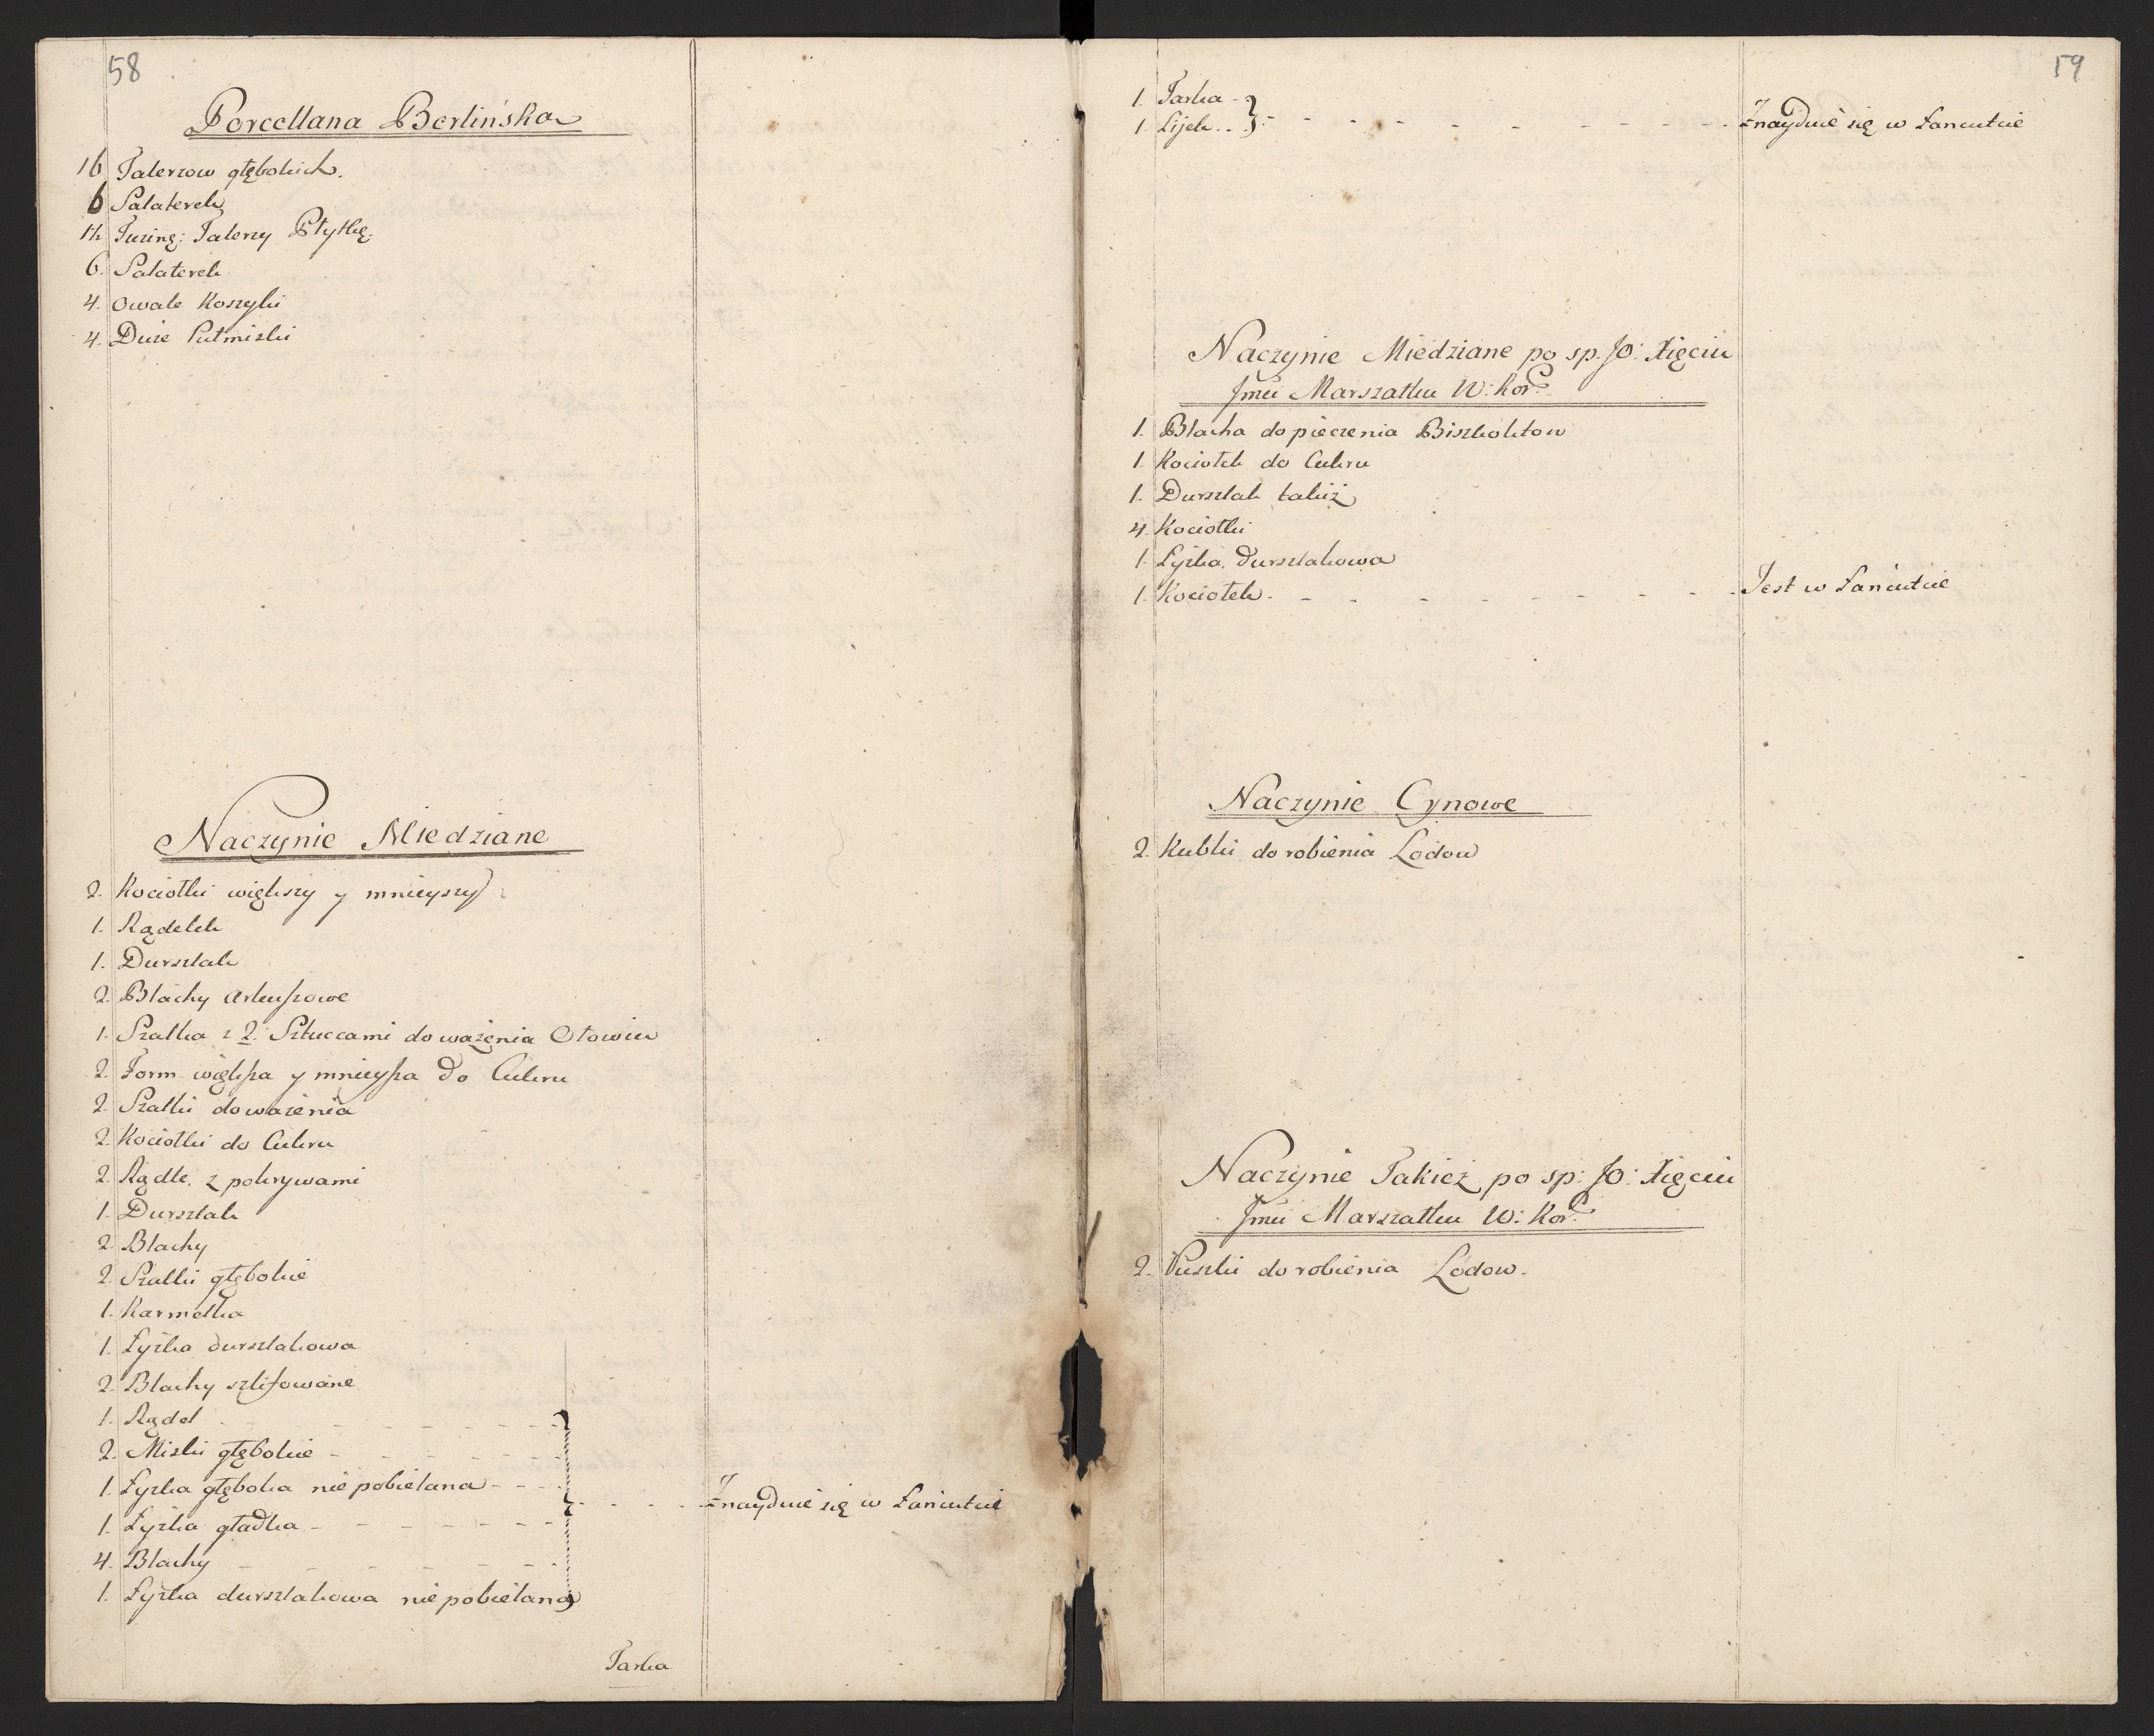 58
Porcellana Berlińska
16 Talerzow głębokich.
6 Salaterek
1½ Tuzing: Talerzy Płytkę:
6. Salaterek
4. Owale Koszyki
4. Duże Pułmiski
Naczynie Miedziane
2. Kociołki większy y mnieyszy
1. Rądelek
1. Durszlak
2. Blachy Arkuszowe
1. Szalka z 2. Sztuccami do ważenia Ołowiu
2. Form większa y mnieysza do Cukru
2. Szalki do ważenia
2. Kociołki do Cukru
2. Rądle. z pokrywami
1. Durszlak
2. Blachy
2. Szalki głębokie
1. Karmelka
1. Łyżka durszlakowa
2. Blachy szlifowane
1. Rądel
2. Miski głębokie
1. Łyżka głęboka nie pobielana
Znayduie się w Łańcutcie
1. Łyżka gładka
4. Blachy
1. Łyżka durszlakowa nie pobielana
Tarka
59
1. Tarka
1. Lijek
Znayduie się w Łancutcie
Naczynie Miedziane po sp. JO: Xięciu
Jmci Marszałku W: Kor:
1. Blacha do pieczenia Biszkoktow
1. Kociołek do Cukru
1. Durszlak takiż
4. Kociołki
1. Łyżka. durszlakowa
1. Kociołek. Jest w Łańcutcie
Naczynie Cynowe
2. Kubki do robienia Lodow
Naczynie Takież po sp: JO: Xięciu
Jmci Marszałku W: Kor:
2. Puszki do robienia Lodow.